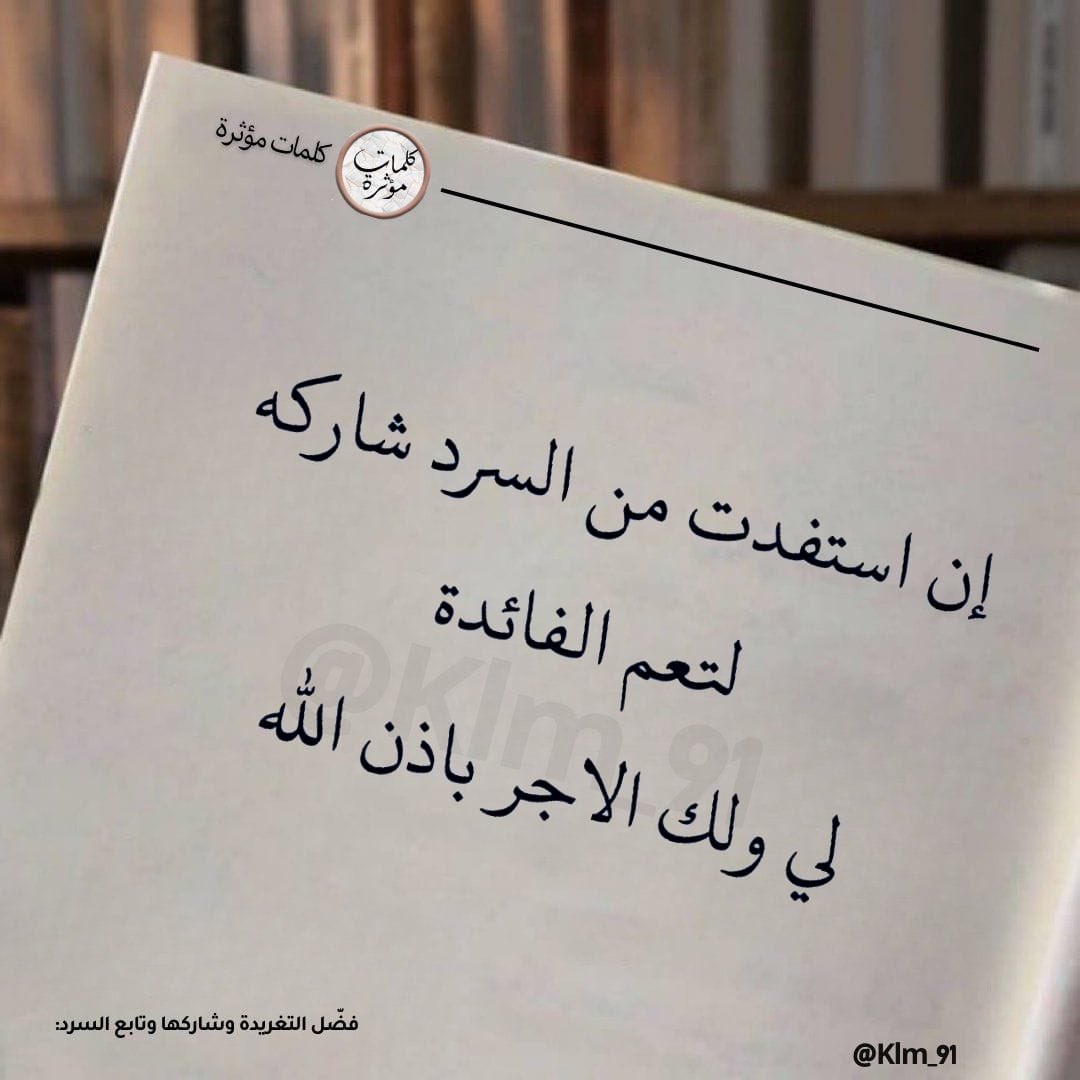 كلمات مؤثرة
كلمات
مؤثرة
إن استفدت من السرد شاركه
لتعم الفائدة
لي ولك الاجر باذن الله
@Klm_91
فضّل التغريدة وشاركها وتابع السرد:
@Klm_91